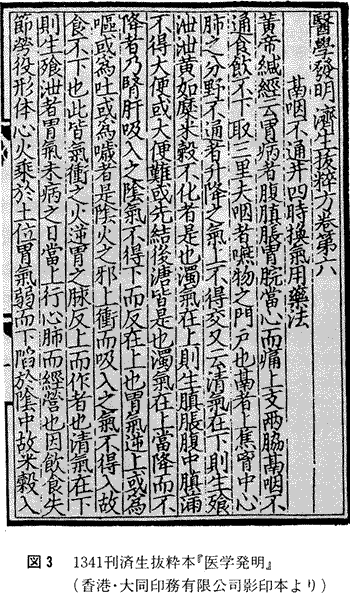 醫學發明 濟生拔粹方卷第六
鬲咽不通并四時換氣用藥法
黄帝鍼經云胃病者腹䐜脹胃脘當心而痛上支兩脇鬲咽不
通食飲不下 取三里夫咽者嚥物之門户也鬲者上焦中心
肺之分野不通者升降之氣上不得交又云清氣在下則生飱
泄泄黄如糜米穀不化者是也濁氣在上則生䐜脹腹中䐜滿
不得大便或大便難或先結後溏皆是也濁氣在上當降而不
降者乃腎肝吸入之陰氣不得下而反在上也胃氣逆上或為
嘔或為吐或為噦者是陰火之邪上衝而吸入之氣不得入故
食不下也此皆氣衝之火逆胃之脉反上而作者也清氣在下
則生飱泄者胃氣未病之日當上行心肺而經營也因飲食失
節勞役形体心火乘於土位胃氣弱而下陷於陰中故米穀入
図3 1341刊済生抜粋本『医学発明』
(香港・大同印務有限公司影印本より)